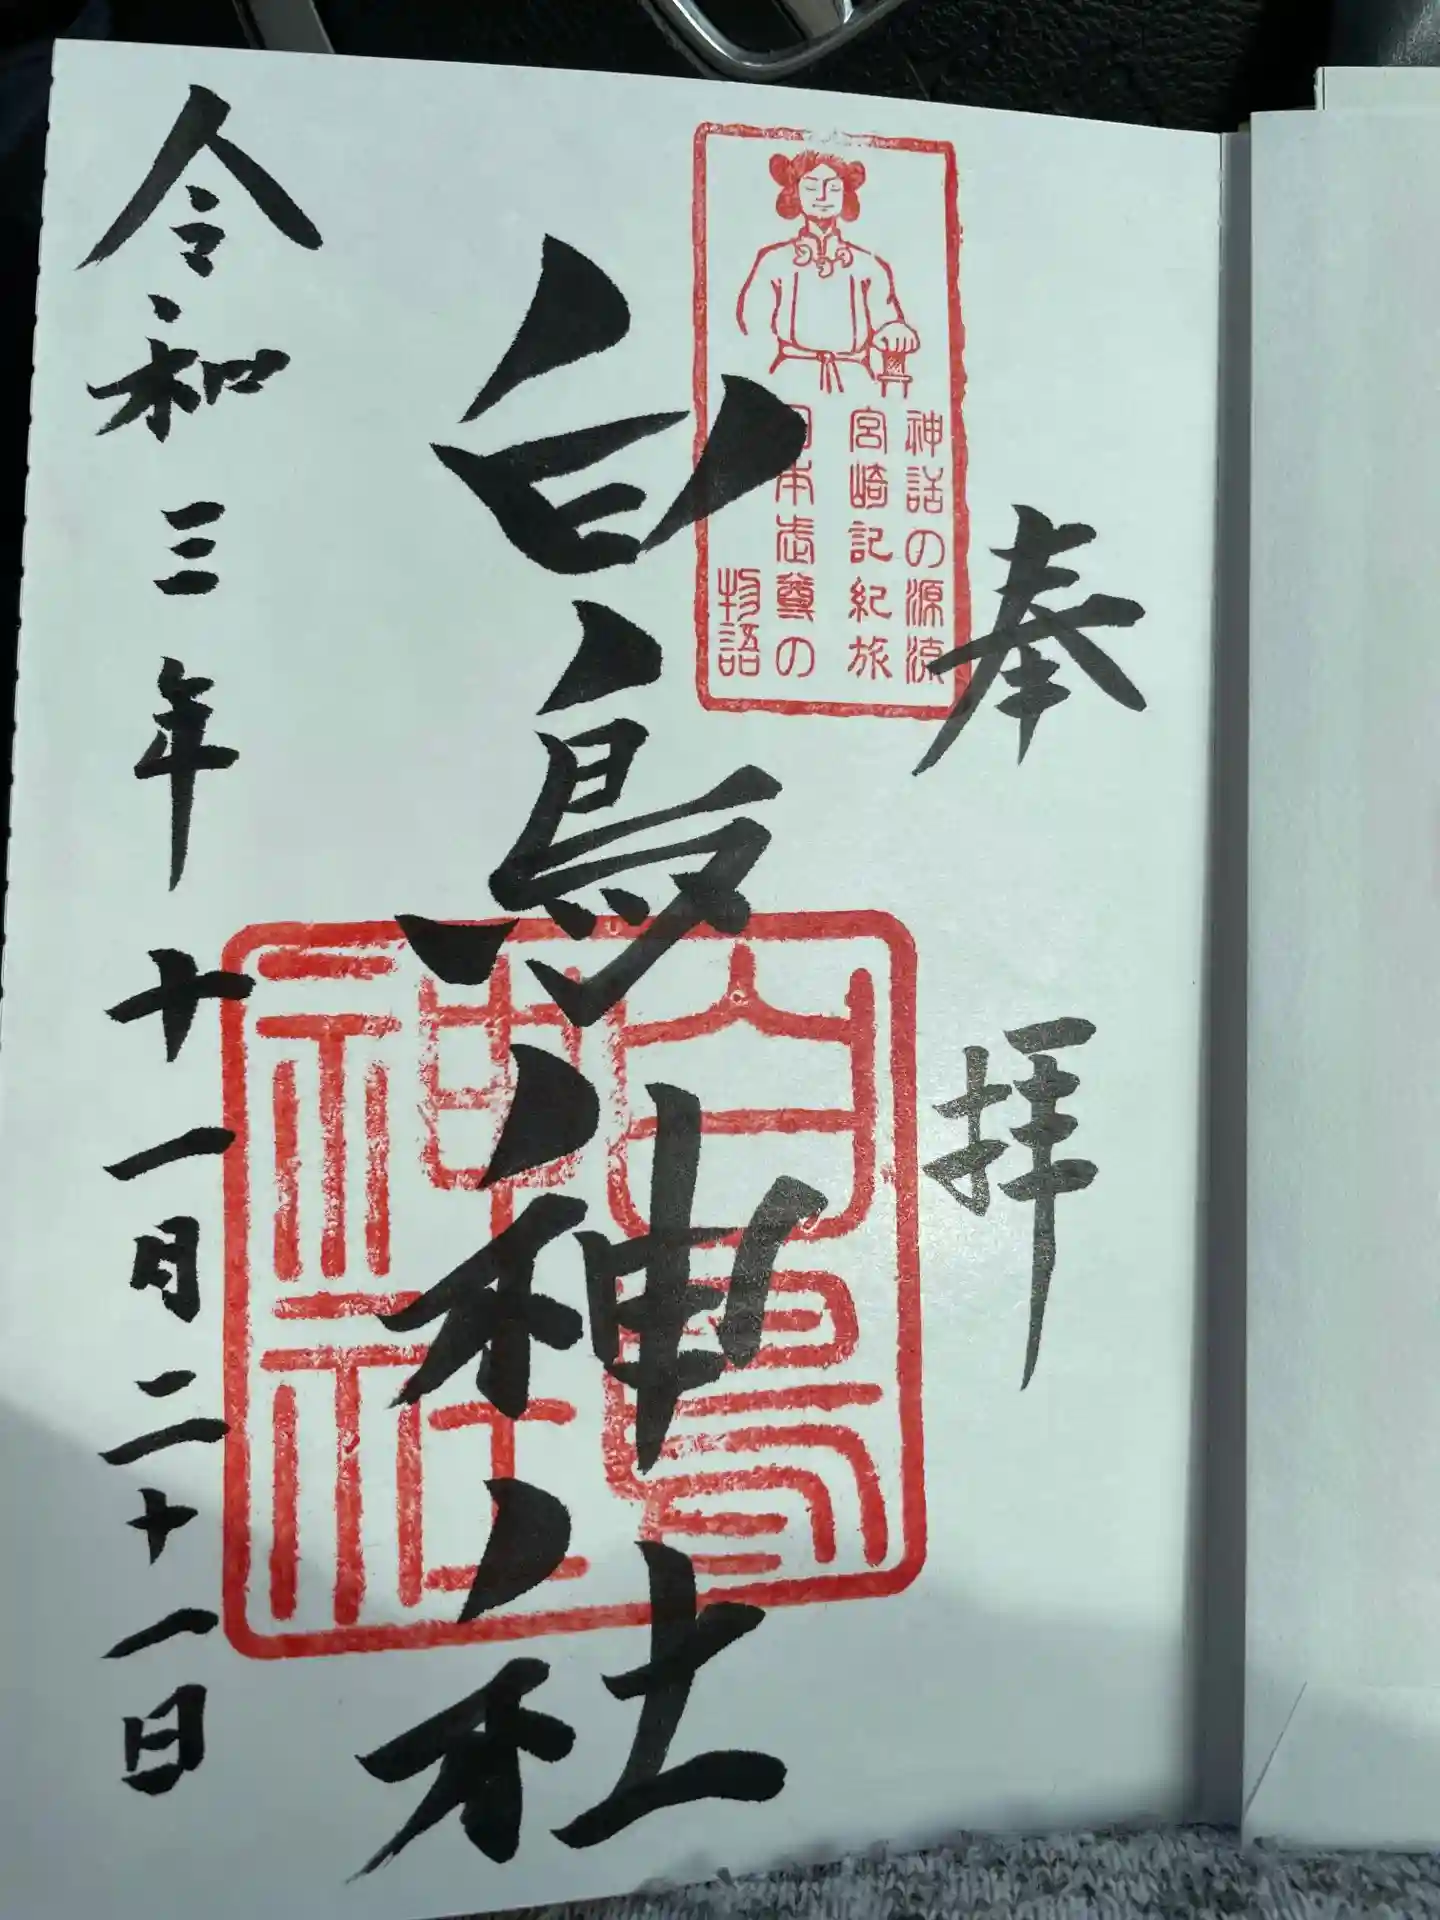 奉拝
神話の源流
宮崎記紀旅
日本武尊の
物語
白鳥神社
白鳥
神社
令和三年十一月二十一日